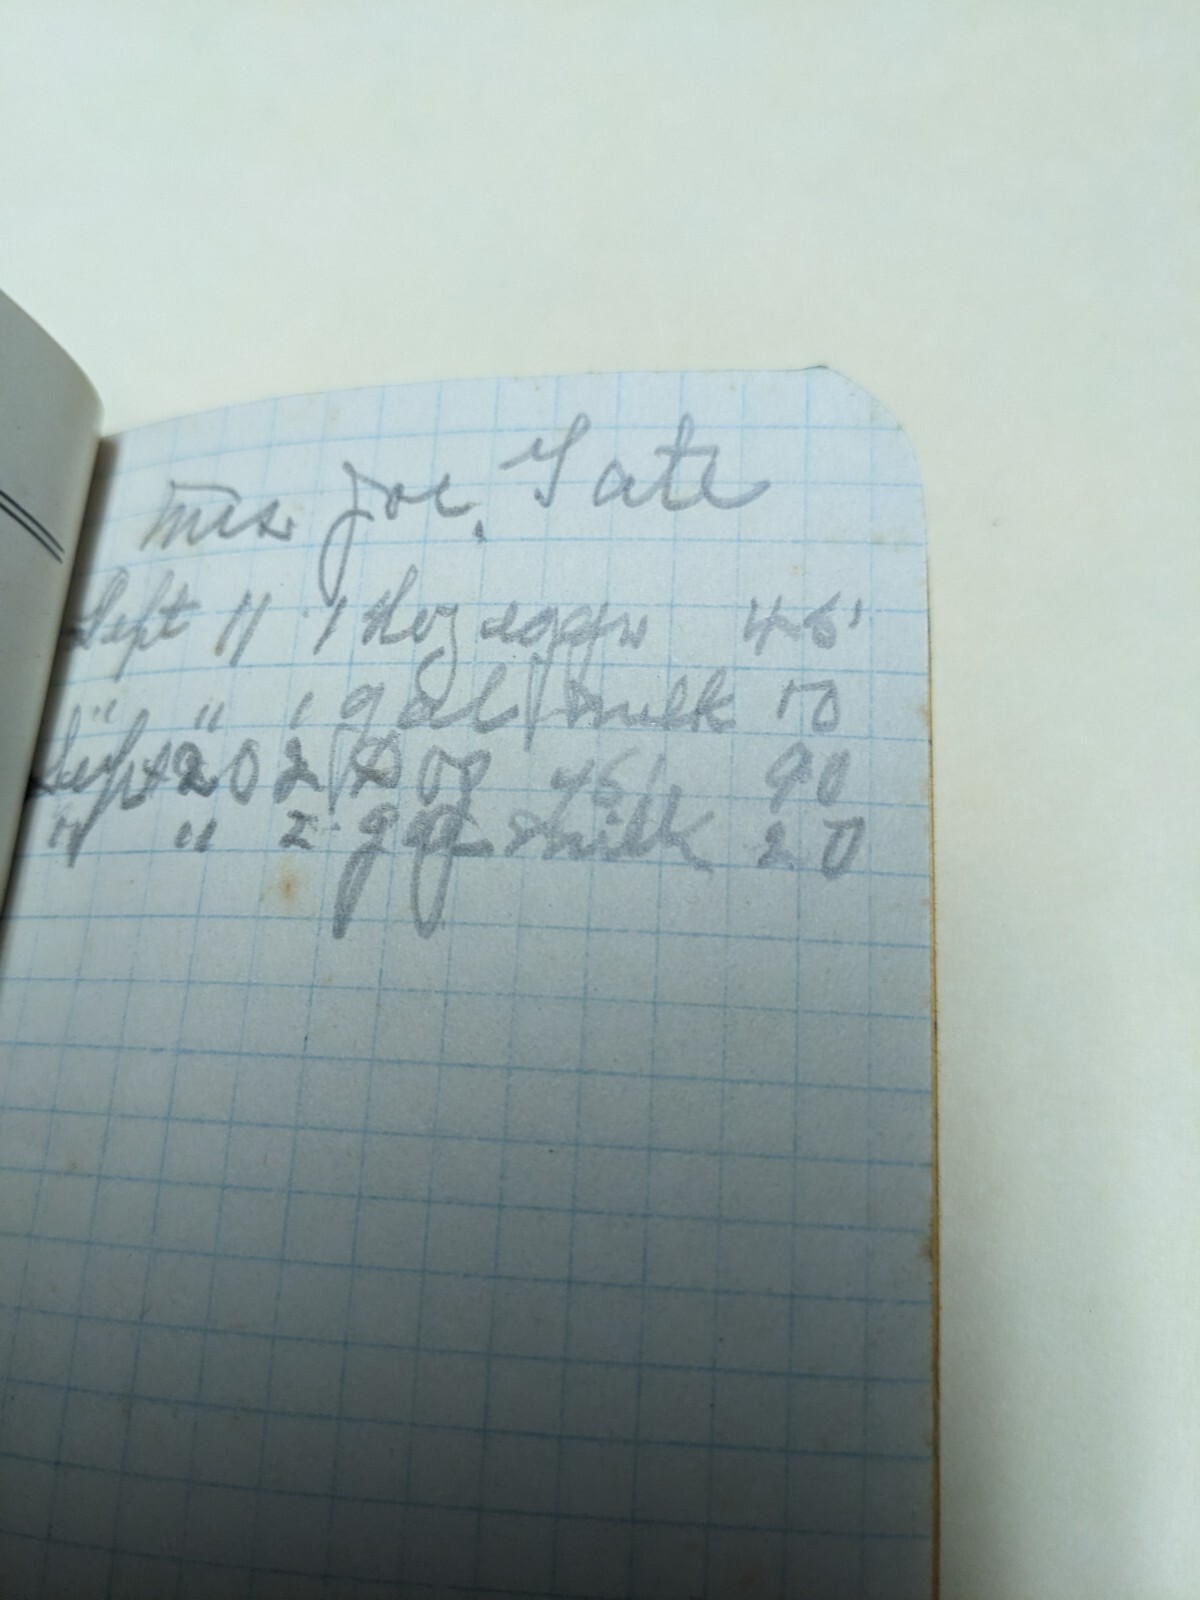 Mrs Joe. Tate
Sept 11 1 doz eggs 45
" " 1 gal milk 10
Sept 20 2 Doz 45 90
" " 2 gal milk 20